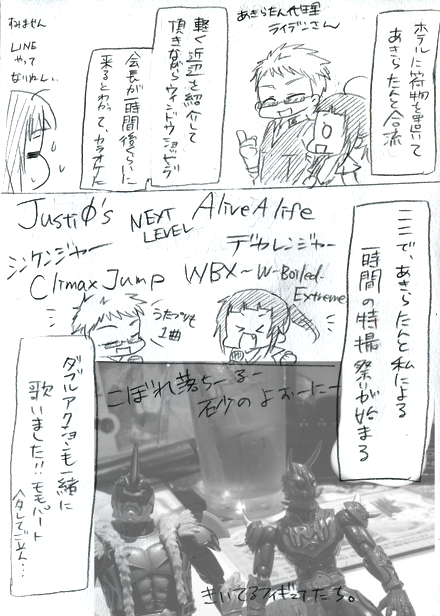 ホテルに荷物を置いて
あきらたんと合流
あきらたん代理
ライデンさん
軽く近辺を紹介して
頂きながらウィンドウショッピング
会長が一時間後くらいに
来るとわかって、カラオケに
すみません
LINE
やって
なりわい。
ここで、あきらたんと私による
一時間の特撮祭が始まる
Justiφ's
NEXT
LEVEL
Alive A life
シンケンジャー
デカレンジャー
Climax Jump
WBX~W-Boiled
Extreme
うたうのも
1曲
こぼれ落ちーるー
砂のよおーにー
ダブルアクションも一緒に
歌いました!!モモパート
ヘタレてごめん…
きいてるフィギュアたち。